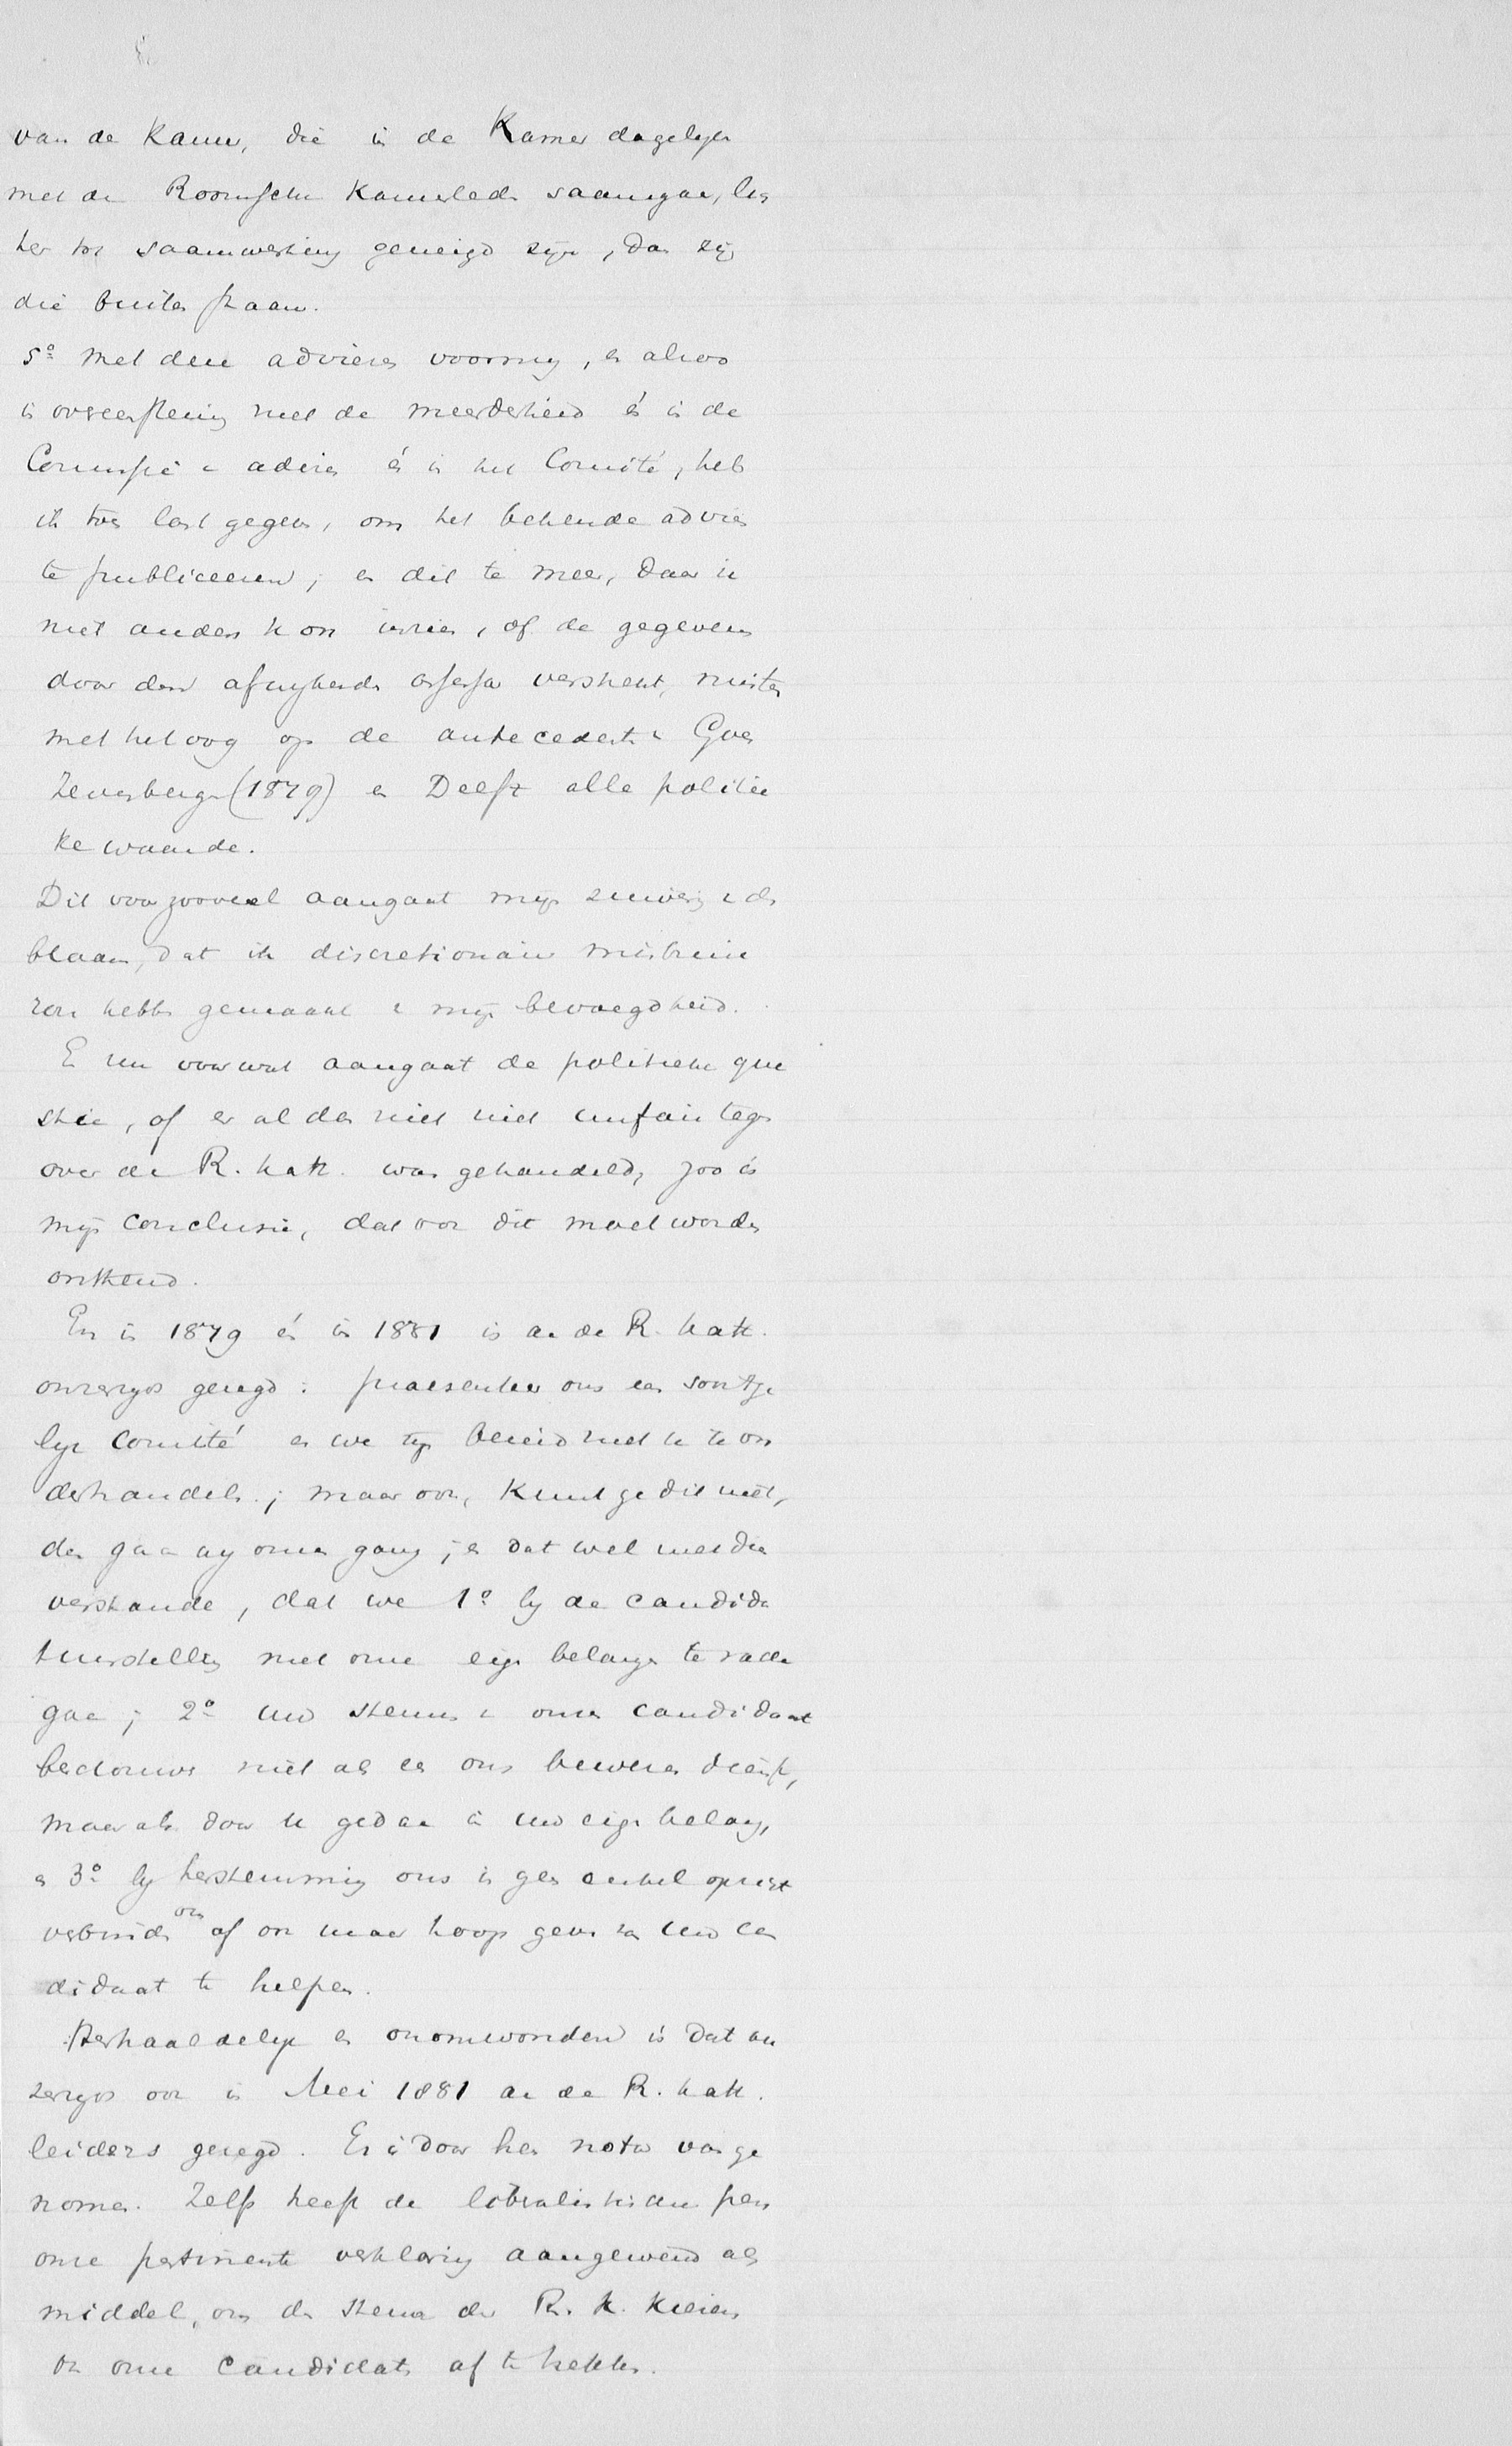 van de Kamer, die in de Kamer dagelijks
met de Roomsche Kamerleden saamgaan, lich
ter tot saamwerking geneigd zijn, dan zij
die buiten staan.
5º Met deze adviezen voorzien, en alzoo
in overeenstemming met de meerderheid én in de
Commissie v advies én in het Comité, heb
ik toen last gegeven, om het bekende advies
te publiceeren; en dit te meer, daar ik
niet anders kon inzien, of de gegevens
door den afwijkende verstrekt, misten
met het oog op de antecedenten v Goes
Zevenbergen (1879) en Delft alle politie
ke waarde.
Dit voor zooveel aangaat mijn zuivering v de
blaam, dat ik discretionair misbruik
zou hebben gemaakt v mijn bevoegdheid.
En nu voor wat aangaat de politieke que
stie, of er al dan niet niet unfair tegen
over de R. Kath. was gehandeld, zoo is
mijn conclusie, dat ook dit moet worden
ontkend.
En in 1879 én in 1881 is aan de R. Kath.
onzerzijds gezegd: praesenteer ons een soortge
lijk Comité en we zijn bereid met u te on
derhandelen; maar ook, kunt ge dit niet,
dan gaan wij onzen gang; en dat wel met dien
verstande, dat we 1º bij de candida
tuurstelling met onze eigen belangen te rade
gaan; 2º uw stemmen v onzen candidaat
beschouwen niet als een ons bewezen dienst,
maar als door u gedaan in uw eigen belang,
en 3º bij herstemming ons in geen enkel opzicht
verbinden of ook maar hoop geven om uw can
ons
didaat te helpen.
Herhaaldelijk en onomwonden is dat on
zerzijds ook in Mei 1881 aan de R. Kath.
leiders gezegd. Er is door hen nota van ge
nomen. Zelfs heeft de liberalistische pers
onze pertinente verklaring aangewend als
middel, om de stemmen der R. K. kiezers
van onze candidaten af te trekken.